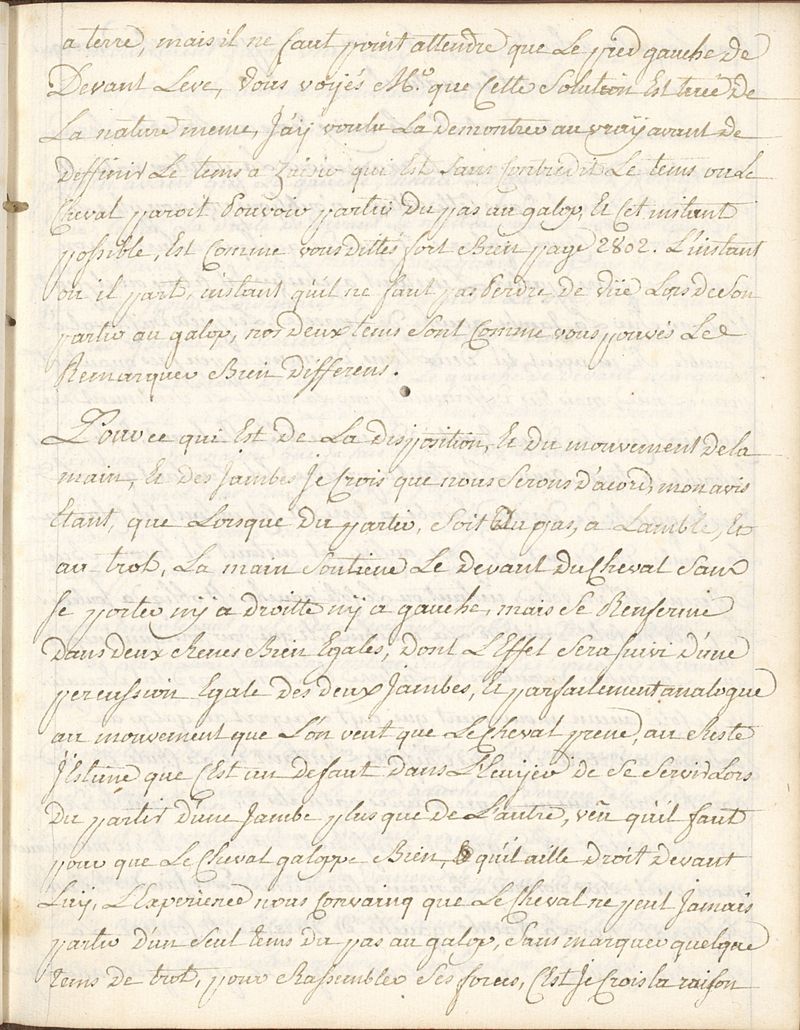 a terre, mais il ne faut point attendre que Le pied gauche de
Devant Leve, Vous voyés Mr. que Cette Solution Est tirée de
La nature meme, J'aÿ voulu La demontrer au vraÿ avant de
deffinir Le tems a saisir qui Est sans Contredit Le tems ou Le
Cheval paroit Pouvoir partir Du pas au galop, Et Cet instant
possible, Est Comme vous dittes fort Bien page 2802. L'instant
ou il part, instant qu'il ne faut pas Perdre de vüe Lors de Son
partir au galop, nos deux tems Sont Comme vous pouvés Le
Remarquer Bien differens.
Pour ce qui Est de La disposition, Et du mouvement de la
main, Et des Jambes Je Crois que nous Serons d'acord, mon avis
Etant, que Lorsque Du partir, Soit Du pas, a Lamble, Et
au trot, La main Soutiene Le devant Du Cheval Sans
se porter nÿ a droitte nÿ a gauche, mais Se Renferme
Dans deux Renes Bien Egales, dont L'Effet Sera suivi d'une
percussion Egale des deux Jambes, Et parfaitement analogue
au mouvement que L'on veut que Le Cheval prene, au Reste
J'Estime que C'Est un defaut dans L'Ecuÿer de Se Servir Lors
Du partir d'une Jambe plus que de L'autre, veu qu'il faut
pour que Le Cheval galoppe Bien, qu'il aille Droit devant
Luÿ, L'Experience nous Convainq que Le Cheval ne peut Jamais
partir d'un Seul tems du pas au galop, Sans marquer quelque
tems de trot, pour Rassembler Ses forces, C'est Je Crois la raison